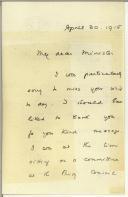 April 30. 1915
My dear Minister
I was particularly
sorry to miss your visit
to day. I should have
liked to thank you
for your kind message
I was at the time
sitting on a committee
at the Privy Council